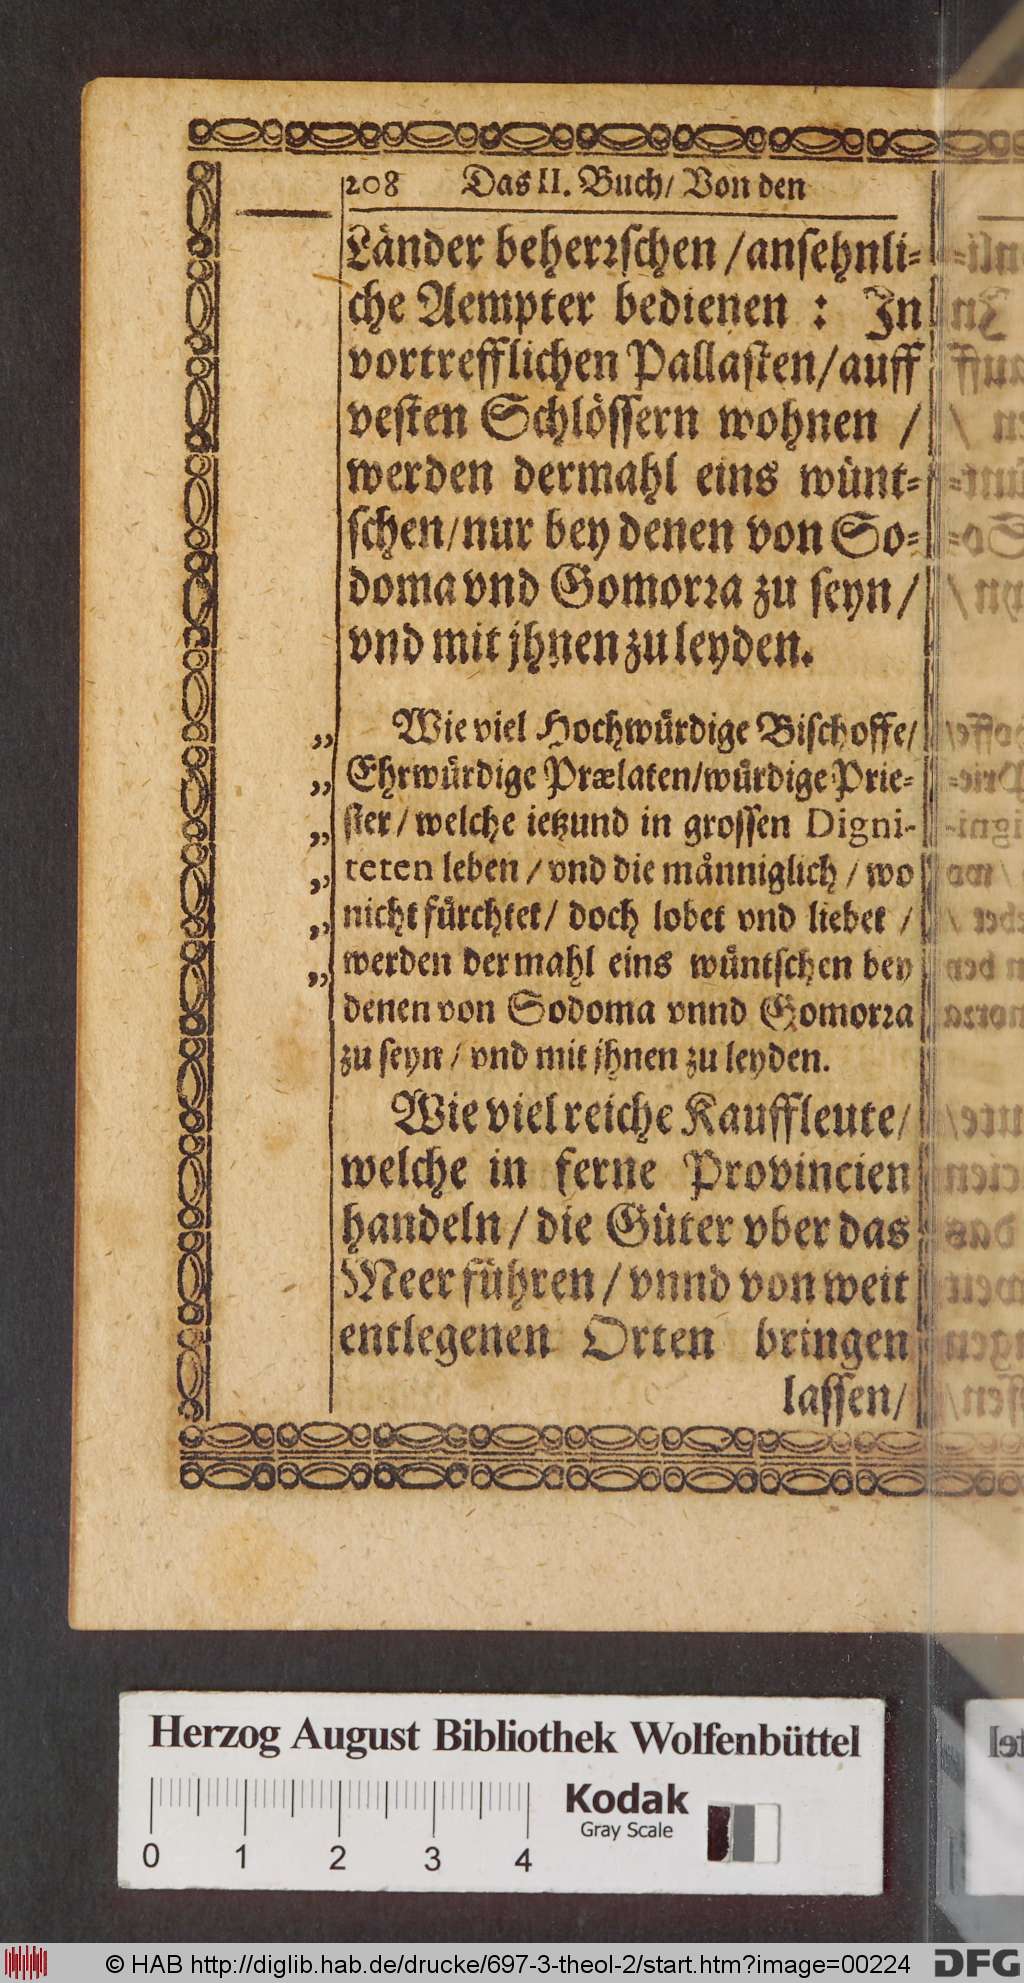 208 Das II. Buch/ Von den
Länder beherrschen /ansehnli-
che Aempter bedienen : In
vortrefflichen Pallasten/auff
vesten Schlössern wohnen /
werden dermahl eins wünt-
schen/nur bey denen von So-
doma vnd Gomorra zu seyn/
vnd mit jhnen zu leyden.
„ Wie viel Hochwürdige Bischoffe/
„ Ehrwürdige Prælaten/würdige Prie-
„ ster/ welche ietzund in grossen Digni-
„ teten leben / vnd die männiglich / wo
„ nicht fürchtet/ doch lobet vnd liebet /
„ werden dermahl eins wüntschen bey
denen von Sodoma vnnd Gomorra
zu seyn / vnd mit jhnen zu leyden.
Wie viel reiche Kauffleute/
welche in ferne Provincien
handeln / die Güter vber das
Meer führen / vnnd von weit
entlegenen Orten bringen
lassen/
Herzog August Bibliothek Wolfenbüttel
Kodak
Gray Scale
0 1 2 3 4
© HAB http://diglib.hab.de/drucke/697-3-theol-2/start.htm?image=00224
DFG